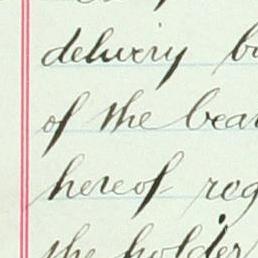 delivery b
of the bear
hereof reg
the holder